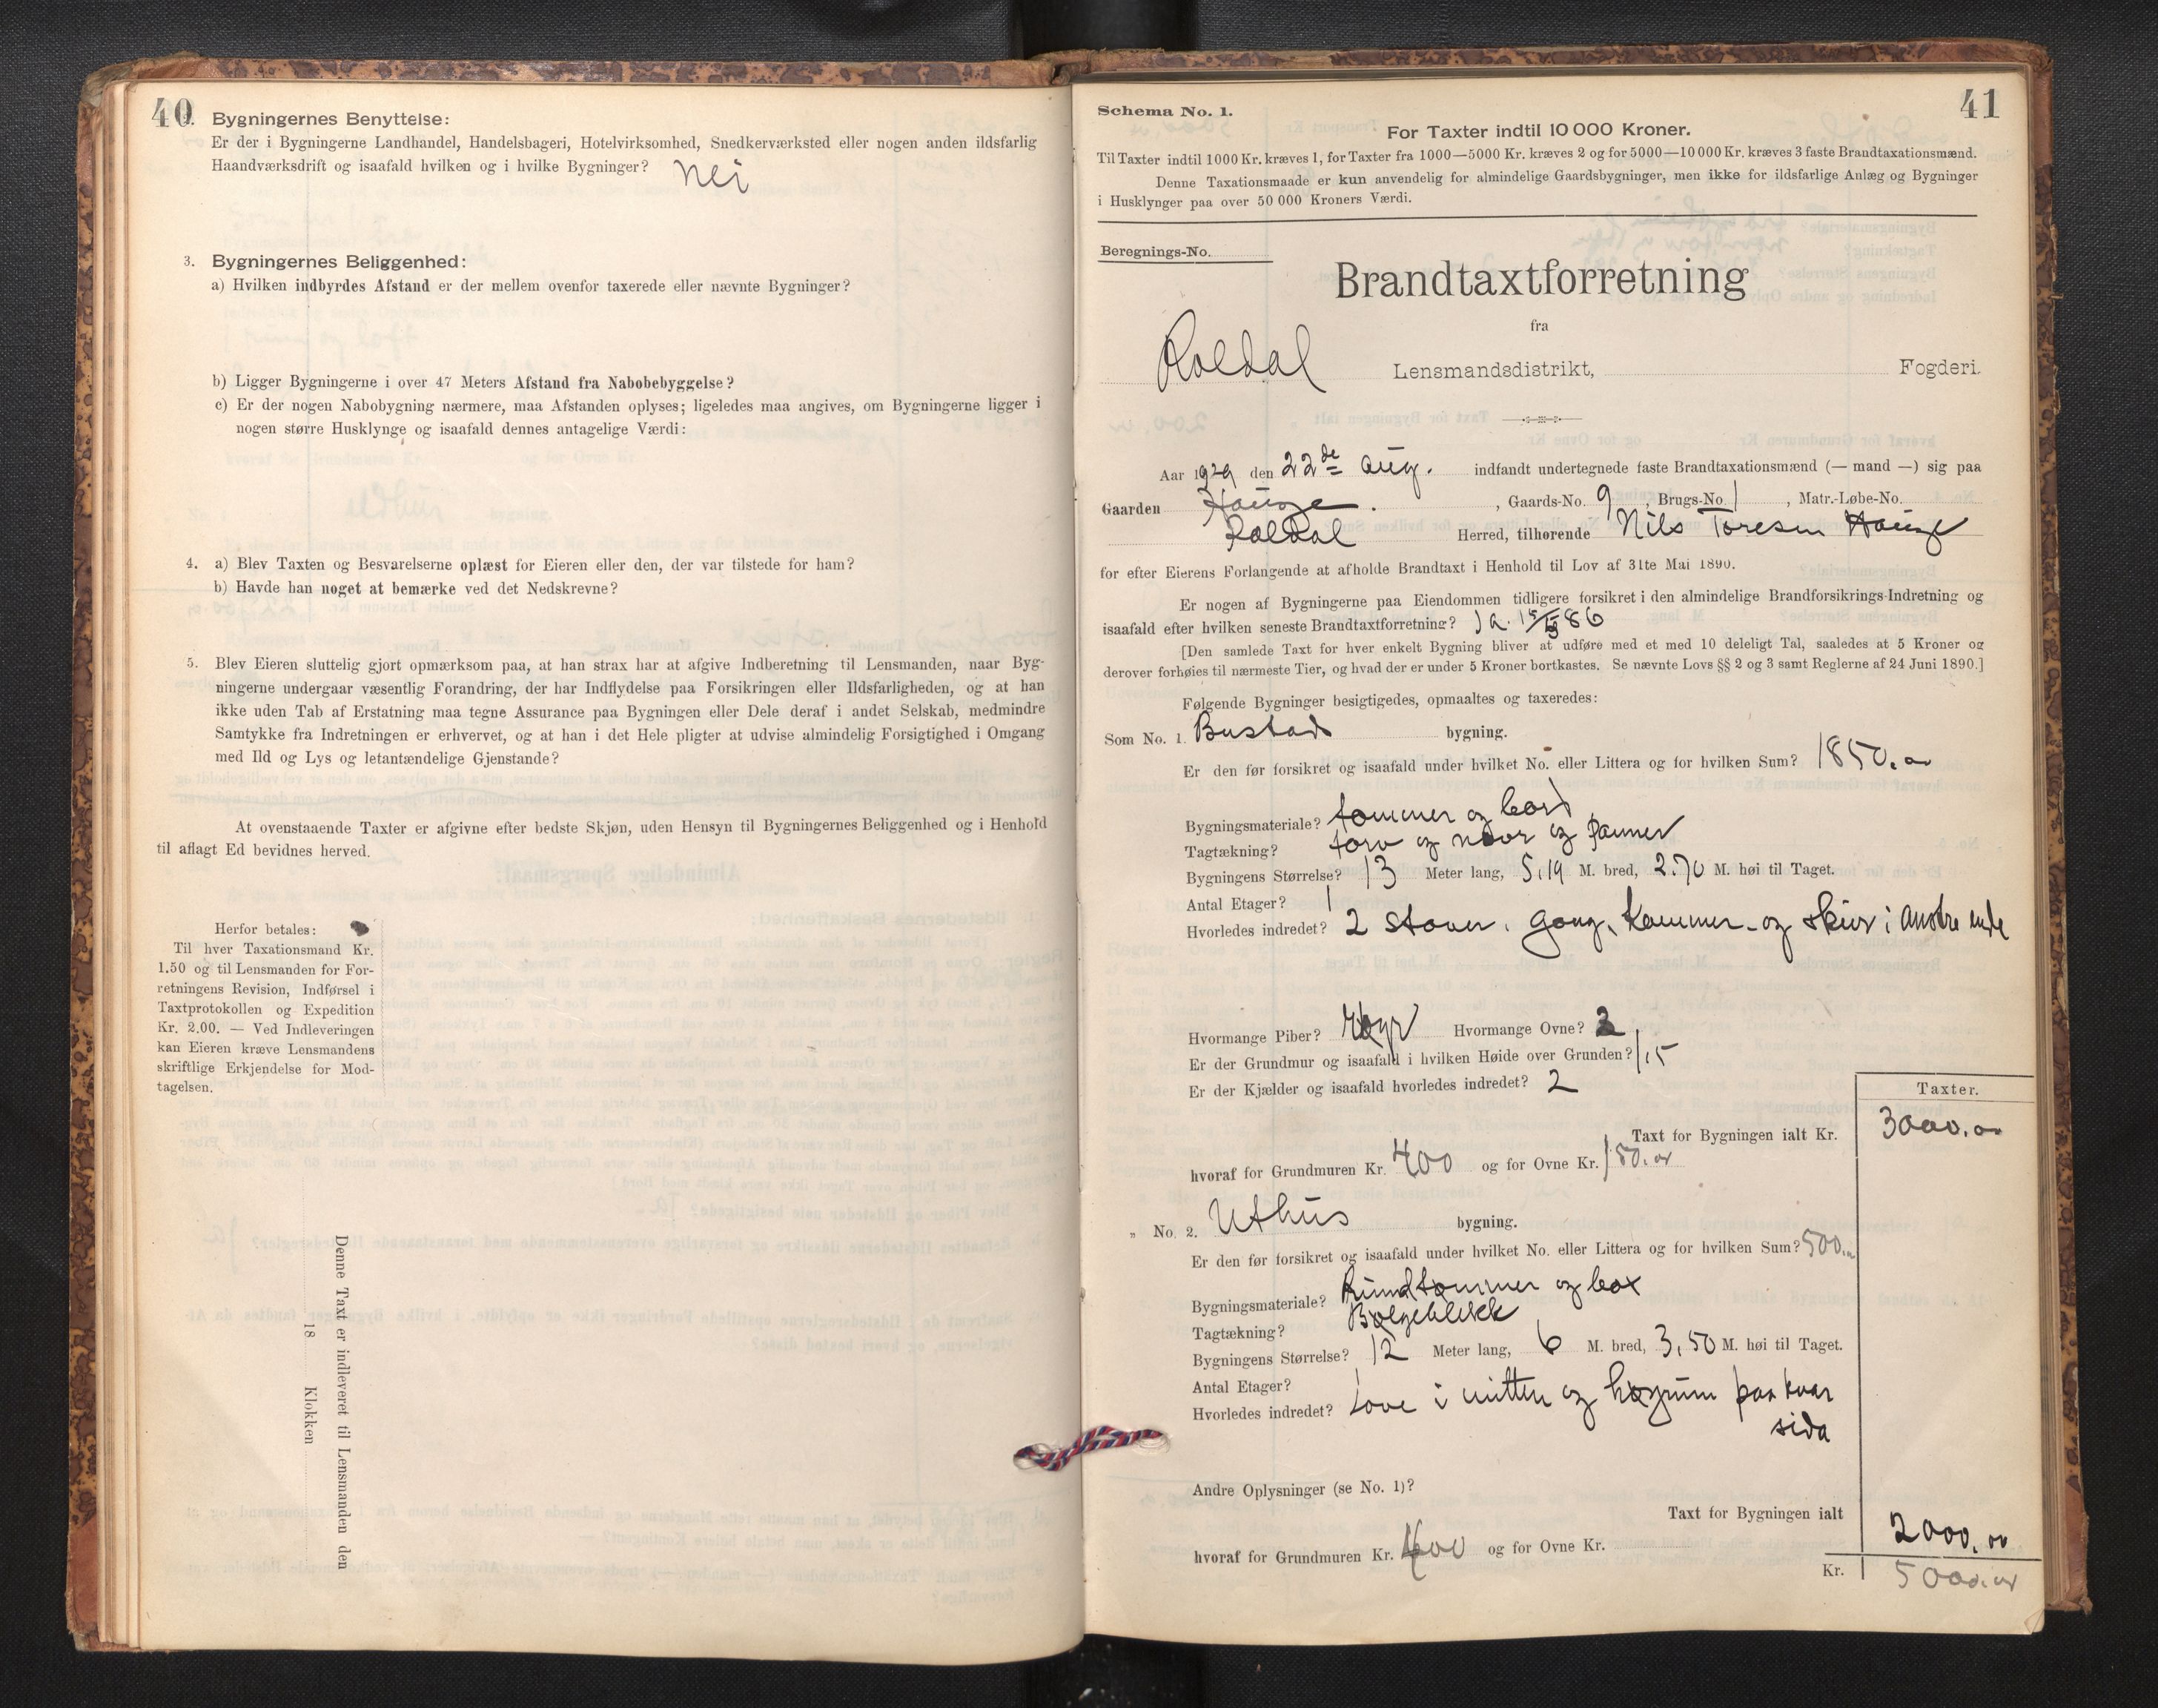 40
2. Bygningernes Benyttelse:
Er der i Bygningerne Landhandel, Handelsbageri, Hotelvirksomhed, Snedkerværksted eller nogen anden ildsfarlig
Haandværksdrift og isaafald hvilken og i hvilke Bygninger? Nei
3. Bygningernes Beliggenhed:
a) Hvilken indbyrdes Afstand er der mellem ovenfor taxerede eller nævnte Bygninger?
b) Ligger Bygningerne i over 47 Meters Afstand fra Nabobebyggelse?
c) Er der nogen Nabobygning nærmere, maa Afstanden oplyses; ligeledes maa angives, om Bygningerne ligger i
nogen større Husklynge og isaafald dennes antagelige Værdi:
4. a) Blev Taxten og Besvarelserne oplæst for Eieren eller den, der var tilstede for ham?
b) Havde han noget at bemærke ved det Nedskrevne?
5. Blev Eieren sluttelig gjort opmærksom paa, at han strax har at afgive Indberetning til Lensmanden, naar Byg-
ningerne undergaar væsentlig Forandring, der har Indflydelse paa Forsikringen eller Ildsfarligheden, og at han
ikke uden Tab af Erstatning maa tegne Assurance paa Bygningen eller Dele deraf i andet Selskab, medmindre
Samtykke fra Indretningen er erhvervet, og at han i det Hele pligter at udvise almindelig Forsigtighed i Omgang
med Ild og Lys og letantændelige Gjenstande?
At ovenstaaende Taxter er afgivne efter bedste Skjøn, uden Hensyn til Bygningernes Beliggenhed og i Henhold
til aflagt Ed bevidnes herved.
Herfor betales:
Til hver Taxationsmand Kr.
1.50 og til Lensmanden for For-
retningens Revision, Indførsel i
Taxtprotokollen og Expedition
Kr. 2.00. — Ved Indleveringen
kan Eieren kræve Lensmandens
skriftlige Erkjendelse for Mod-
tagelsen.
Denne Taxt er indleveret til Lensmanden den
18 Klokken
41
Schema No. 1.
For Taxter indtil 10 000 Kroner.
Til Taxter indtil 1000 Kr. kræves 1, for Taxter fra 1000—5000 Kr. kræves 2 og for 5000—10 000 Kr. kræves 3 faste Brandtaxationsmænd.
Denne Taxationsmaade er kun anvendelig for almindelige Gaardsbygninger, men ikke for ildsfarlige Anlæg og Bygninger
i Husklynger paa over 50 000 Kroners Værdi.
Beregnings-No.
Brandtaxtforretning
fra
Røldal Lensmandsdistrikt, Fogderi.
Aar 1929 den 22de aug. indfandt undertegnede faste Brandtaxationsmænd (— mand —) sig paa
Gaarden Hauge, Gaards-No. 9, Brugs-No. 1, Matr.-Løbe-No.
Røldal Herred, tilhørende Nils Toresen Hauge
for efter Eierens Forlangende at afholde Brandtaxt i Henhold til Lov af 31te Mai 1890.
Er nogen af Bygningerne paa Eiendommen tidligere forsikret i den almindelige Brandforsikrings-Indretning og
isaafald efter hvilken seneste Brandtaxtforretning? Ja. 86
[Den samlede Taxt for hver enkelt Bygning bliver at udføre med et med 10 deleligt Tal, saaledes at 5 Kroner og
derover forhøies til nærmeste Tier, og hvad der er under 5 Kroner bortkastes. Se nævnte Lovs §§ 2 og 3 samt Reglerne af 24 Juni 1890.]
Følgende Bygninger besigtigedes, opmaaltes og taxeredes:
Som No. 1. Bustads bygning.
Er den før forsikret og isaafald under hvilket No. eller Littera og for hvilken Sum? 1850.00
Bygningsmateriale? tømmer og bord
Tagtækning? torv og nævr og panner
Bygningens Størrelse? 13 Meter lang, 5,19 M. bred, 2.70 M. høi til Taget.
Antal Etager? 1
Hvorledes indredet? 2 stover, gang, kammer og skur i østre ende
Hvormange Piber? røyr Hvormange Ovne? 2
Er der Grundmur og isaafald i hvilken Høide over Grunden? 1,5
Er der Kjælder og isaafald hvorledes indredet? 2
Taxter.
Taxt for Bygningen ialt Kr. 3000.00
hvoraf for Grundmuren Kr. 400 og for Ovne Kr. 150.00
„ No. 2. Uthus bygning.
Er den før forsikret og isaafald under hvilket No. eller Littera og for hvilken Sum? 500.00
Bygningsmateriale? Rundtømmer og bord
Tagtækning? Bølgeblekk
Bygningens Størrelse? 12 Meter lang, 6 M. bred, 3,50 M. høi til Taget.
Antal Etager? 1
Hvorledes indredet? Løve i mitten og høyrum paa kvar
sida
Andre Oplysninger (se No. 1)?
Taxt for Bygningen ialt 2000.00
hvoraf for Grundmuren Kr. 400 og for Ovne Kr.
Kr. 5000.00